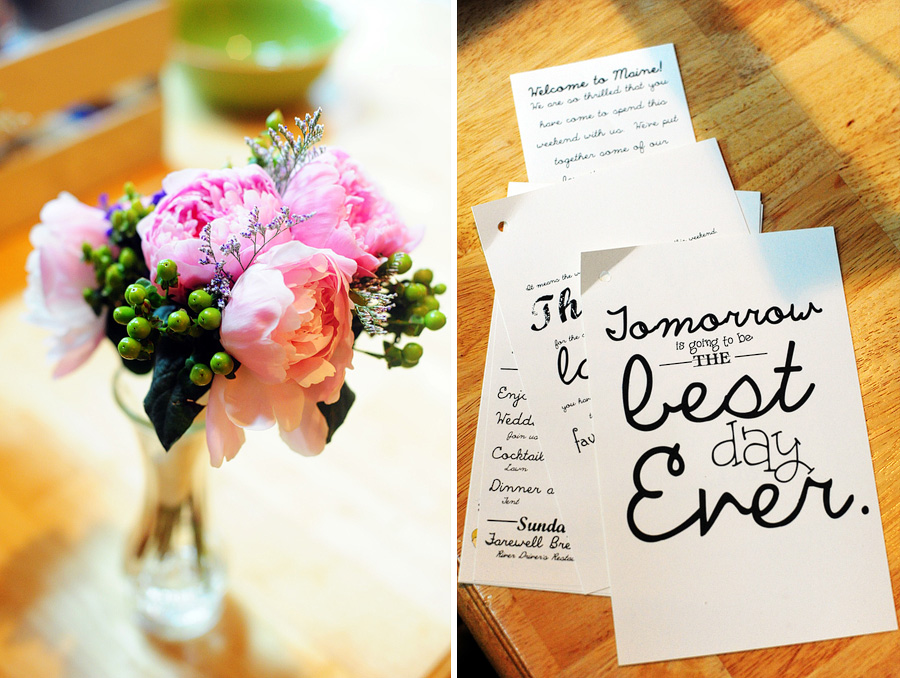 Welcome to Maine!
We are so thrilled that you
have come to spend this
weekend with us. We've put
together some of our
weekend
It means the w
Th
for the
lo
you hav
t
fav
Enjo
Wedd
Join us
Cocktail
Lawn
Dinner a
Tent
Sunda
Farewell Bre
River Driver's Resta
Tomorrow
is going to be
THE
best
day
Ever.